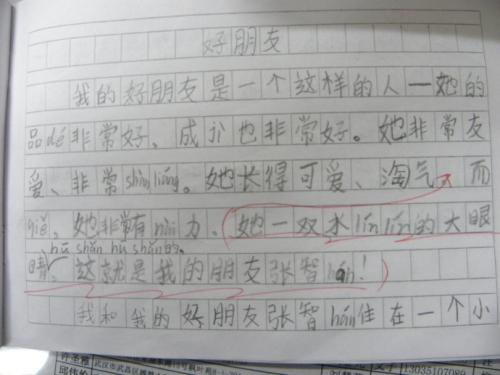 好朋友
我的好朋友是一个这样的人—她的
品dé非常好。成jì也非常好。她非常友
爱、非常shànliáng。她长得可爱、淘气、而
qiě。她非常有nài力、她一双水līnlīn的大眼
hū shǎn hū shǎn的。
睛、这就是我的朋友张智hán!
我和我的好朋友张智hán住在一个小
13035107089